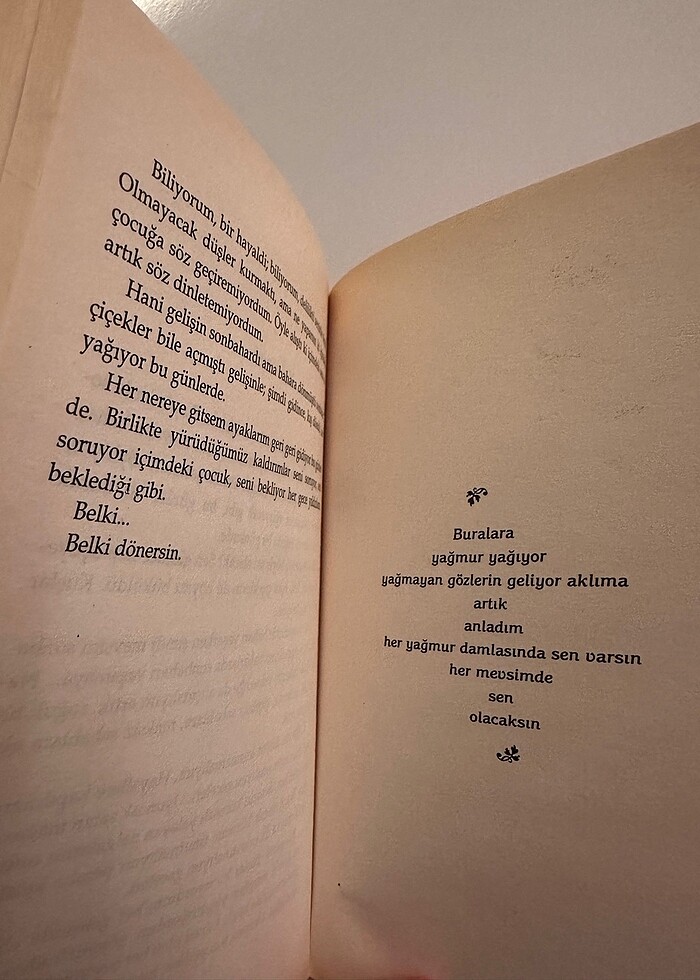 Biliyorum, bir hayaldi; biliyorum,
Olmayacak düşler kurmaktı, ama ne
çocuğa söz geçiremiyordum. Öyle alıştı ki
artık söz dinletemiyordum.
Hani gelişin sonbahardı ama bahara
çiçekler bile açmıştı gelişinle; şimdi gidince, kış
yağıyor bu günlerde.
Her nereye gitsem ayaklarım geri geri gidiyor bu
de. Birlikte yürüdüğümüz kaldırımlar seni soruyor,
soruyor içimdeki çocuk, seni bekliyor her gece
beklediği gibi.
Belki...
Belki dönersin.
Buralara
yağmur yağıyor
yağmayan gözlerin geliyor aklıma
artık
anladım
her yağmur damlasında sen varsın
her mevsimde
sen
olacaksın